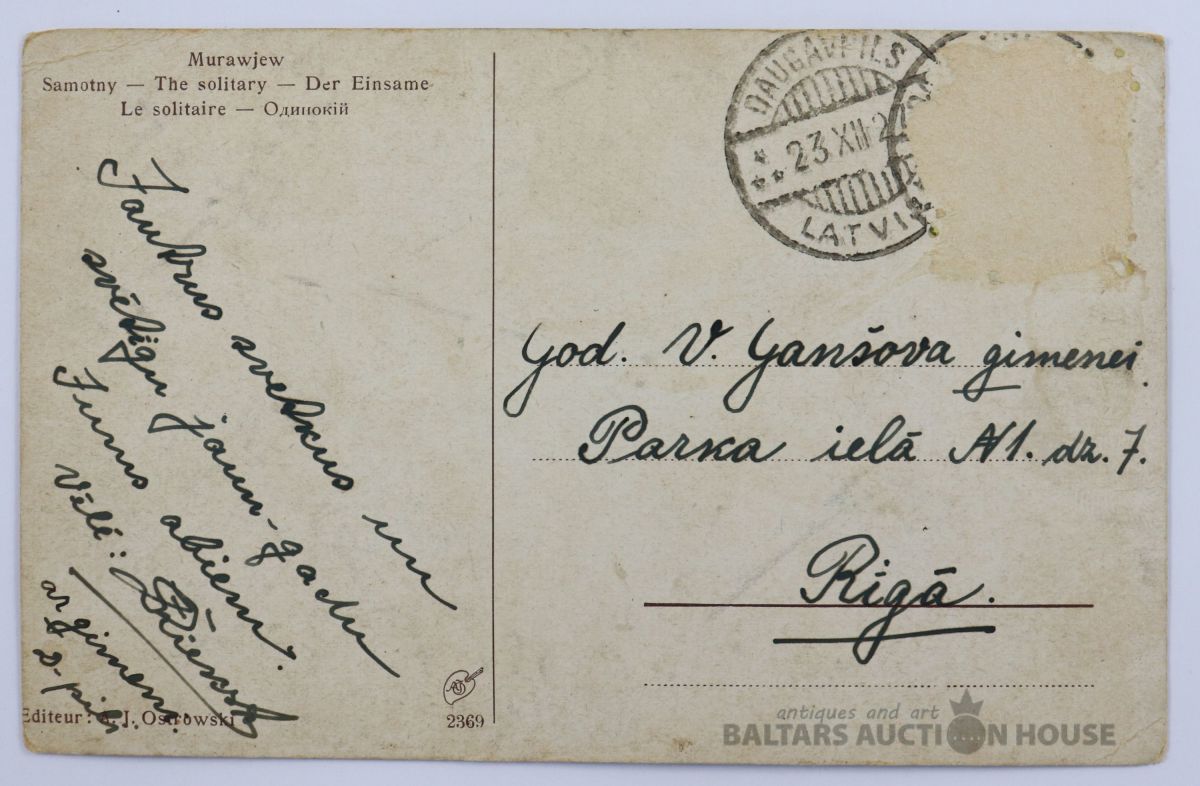 Murawjew
Samotny — The solitary — Der Einsame
Le solitaire — Одинокій
Jautrus svetkus un
svētīgu jaun-gadu
Jums abiem.
Vēlē:
ar ģimeni.
D-pilī
Editeur: A. J. Ostrowski
2369
DAUGAVPILS
23 XII 2
LATVIJA
God. V. Ganšova ģimenei.
Parka ielā №1. dz. 7.
Rīgā.
antiques and art
BALTARS AUCTION HOUSE